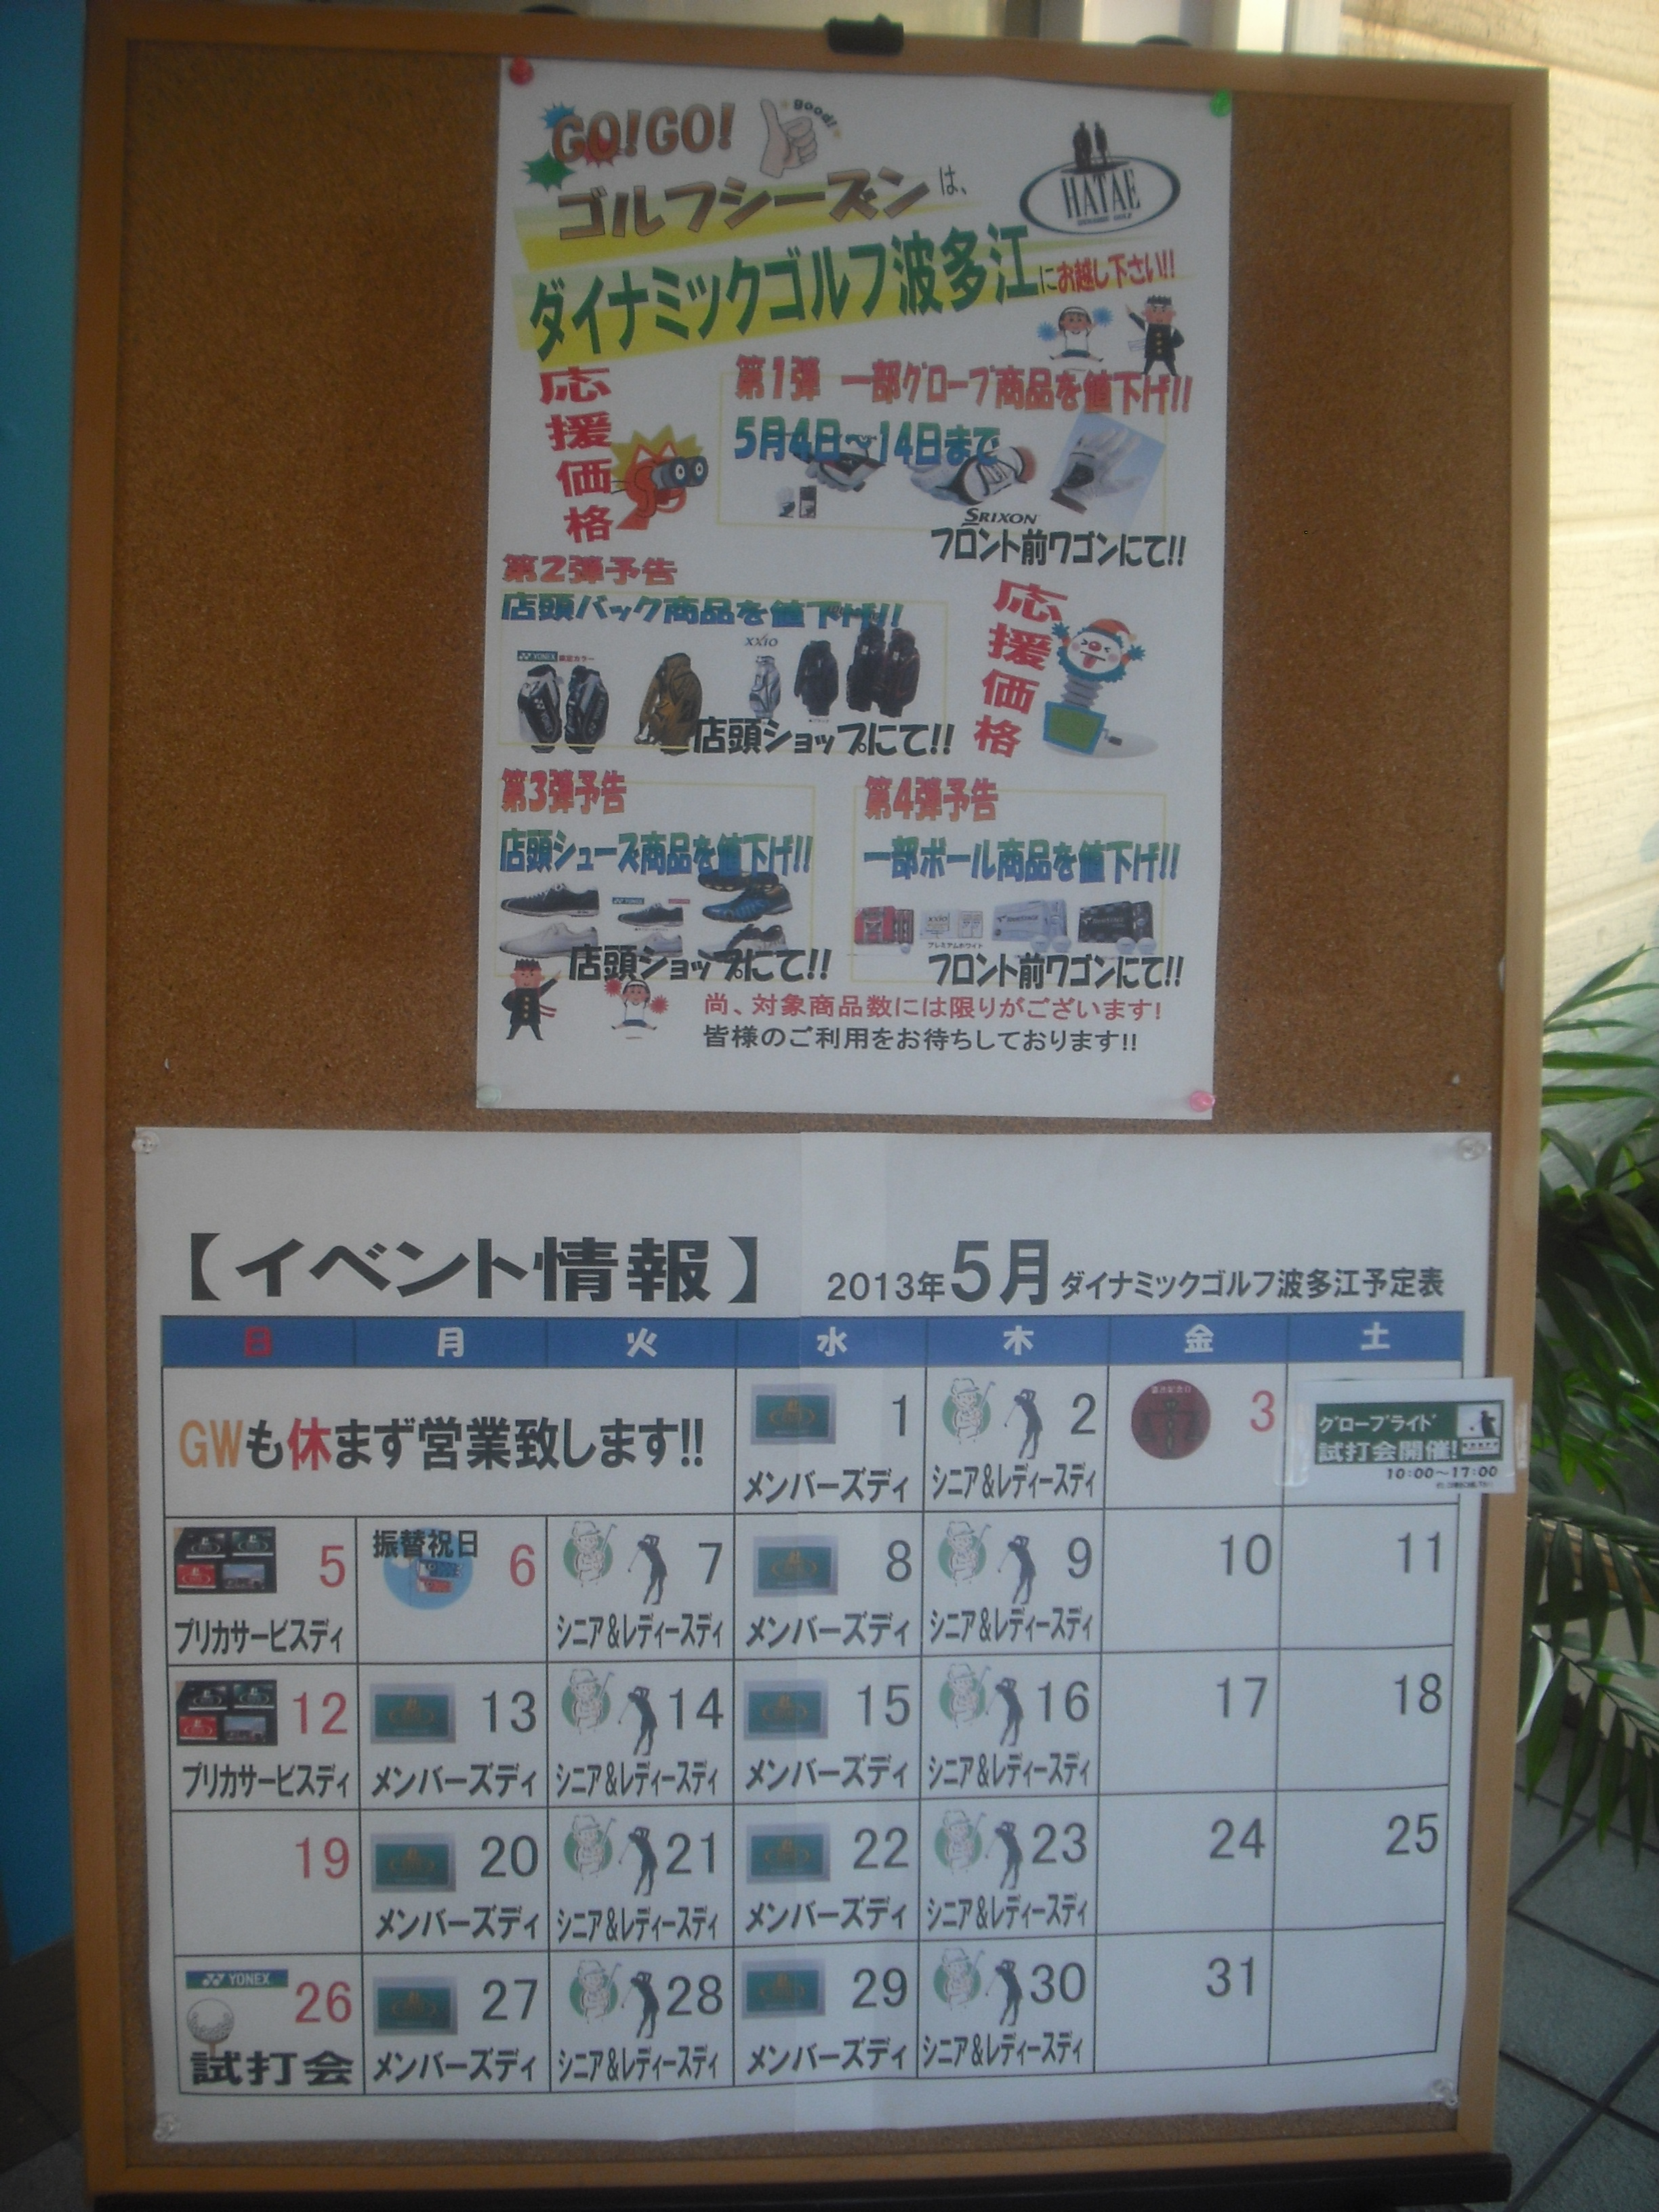 GO!GO!
good!
ゴルフシーズンは、
HATAE
ダイナミックゴルフ波多江にお越し下さい!!
応援価格
第1弾 一部グローブ商品を値下げ!!
5月4日~14日まで
SRIXON
フロント前ワゴンにて!!
第2弾予告
店頭バック商品を値下げ!!
YONEX 限定カラー
XXIO
店頭ショップにて!!
応援価格
第3弾予告
店頭シューズ商品を値下げ!!
YONEX
店頭ショップにて!!
第4弾予告
一部ボール商品を値下げ!!
XXIO
プレミアムホワイト
フロント前ワゴンにて!!
尚、対象商品数には限りがございます!
皆様のご利用をお待ちしております!!
【イベント情報】 2013年5月ダイナミックゴルフ波多江予定表
日 月 火 水 木 金 土
GWも休まず営業致します!!
1 メンバーズディ
2 シニア&レディースディ
憲法記念日 3
グローブライド
試打会開催!
10:00~17:00
5 プリカサービスディ
振替祝日 6
7 シニア&レディースディ
8 メンバーズディ
9 シニア&レディースディ
10
11
12 プリカサービスディ
13 メンバーズディ
14 シニア&レディースディ
15 メンバーズディ
16 シニア&レディースディ
17
18
19
20 メンバーズディ
21 シニア&レディースディ
22 メンバーズディ
23 シニア&レディースディ
24
25
YONEX 26 試打会
27 メンバーズディ
28 シニア&レディースディ
29 メンバーズディ
30 シニア&レディースディ
31